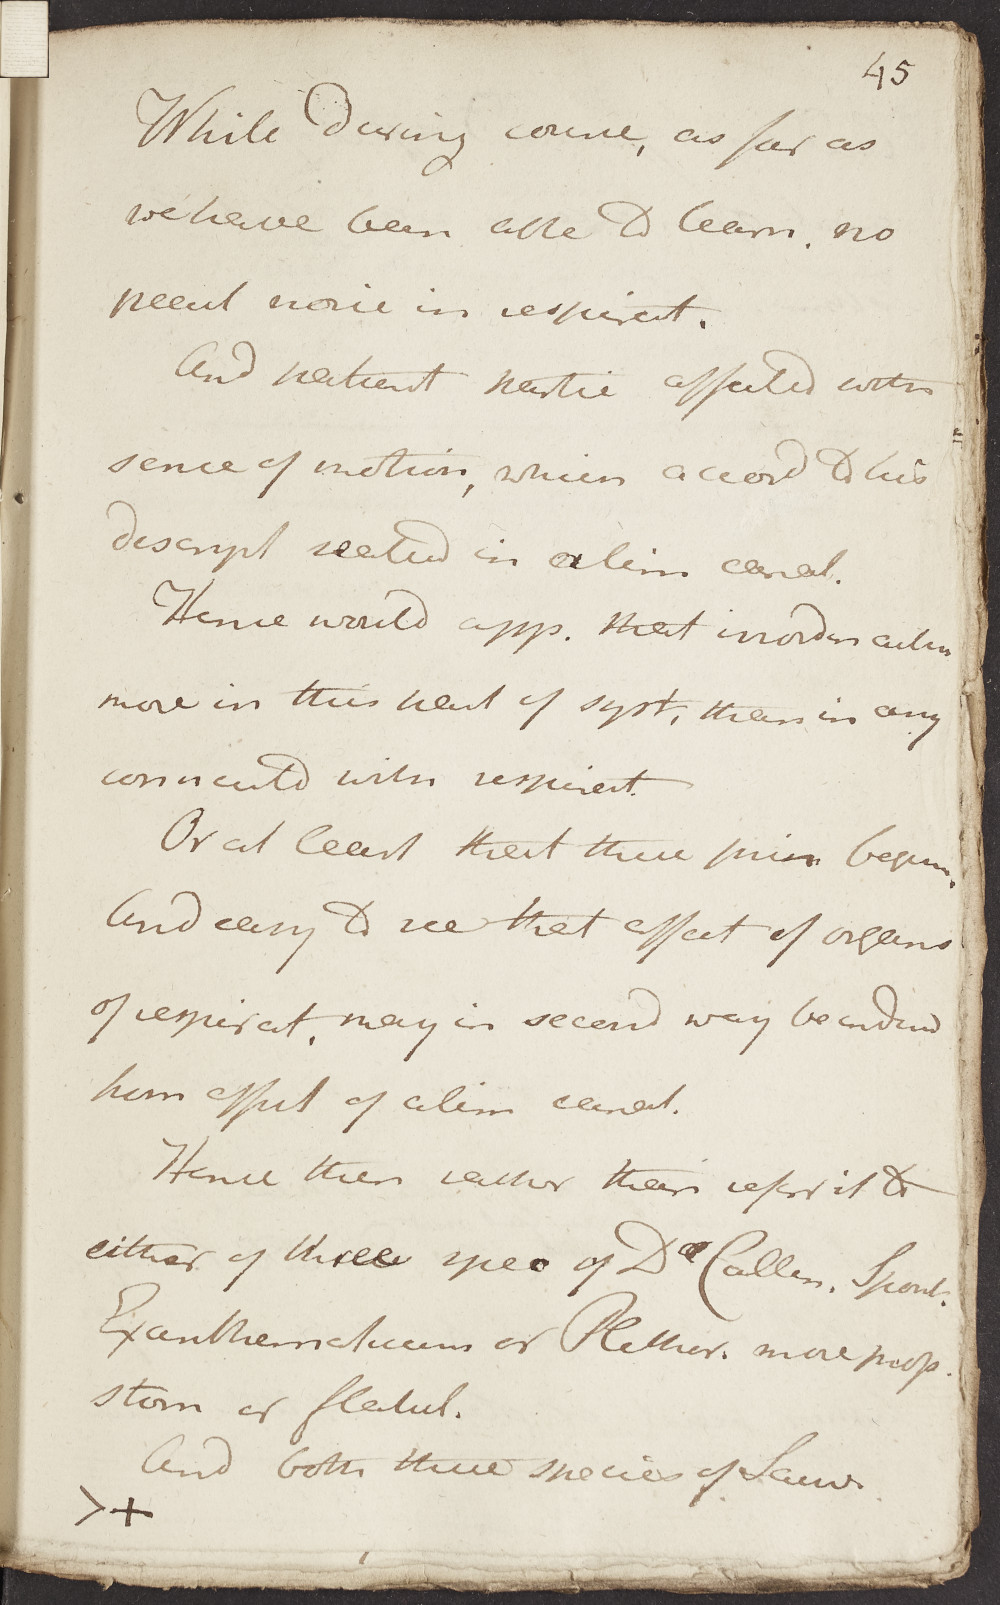 45
While During course, as far as
we have been able to learn, no
pecul noise in respirat.
And patient partic affected with
sence of motion, which accord to his
descript seated in alim canal.
Hence would app. that inordin action
more in this part of syst. than in any
connected with respirat.
Or at least that there prim begun.
And easy to see that affect of organs
of respirat, may in second way be induced
from affect of alim canal.
Hence then rather than refer it to
either of three spec of Dr Cullen, Spont.
Exanthematicum or Plethor. more prop.
stom or flatul.
And both these species of Sauv.
>+